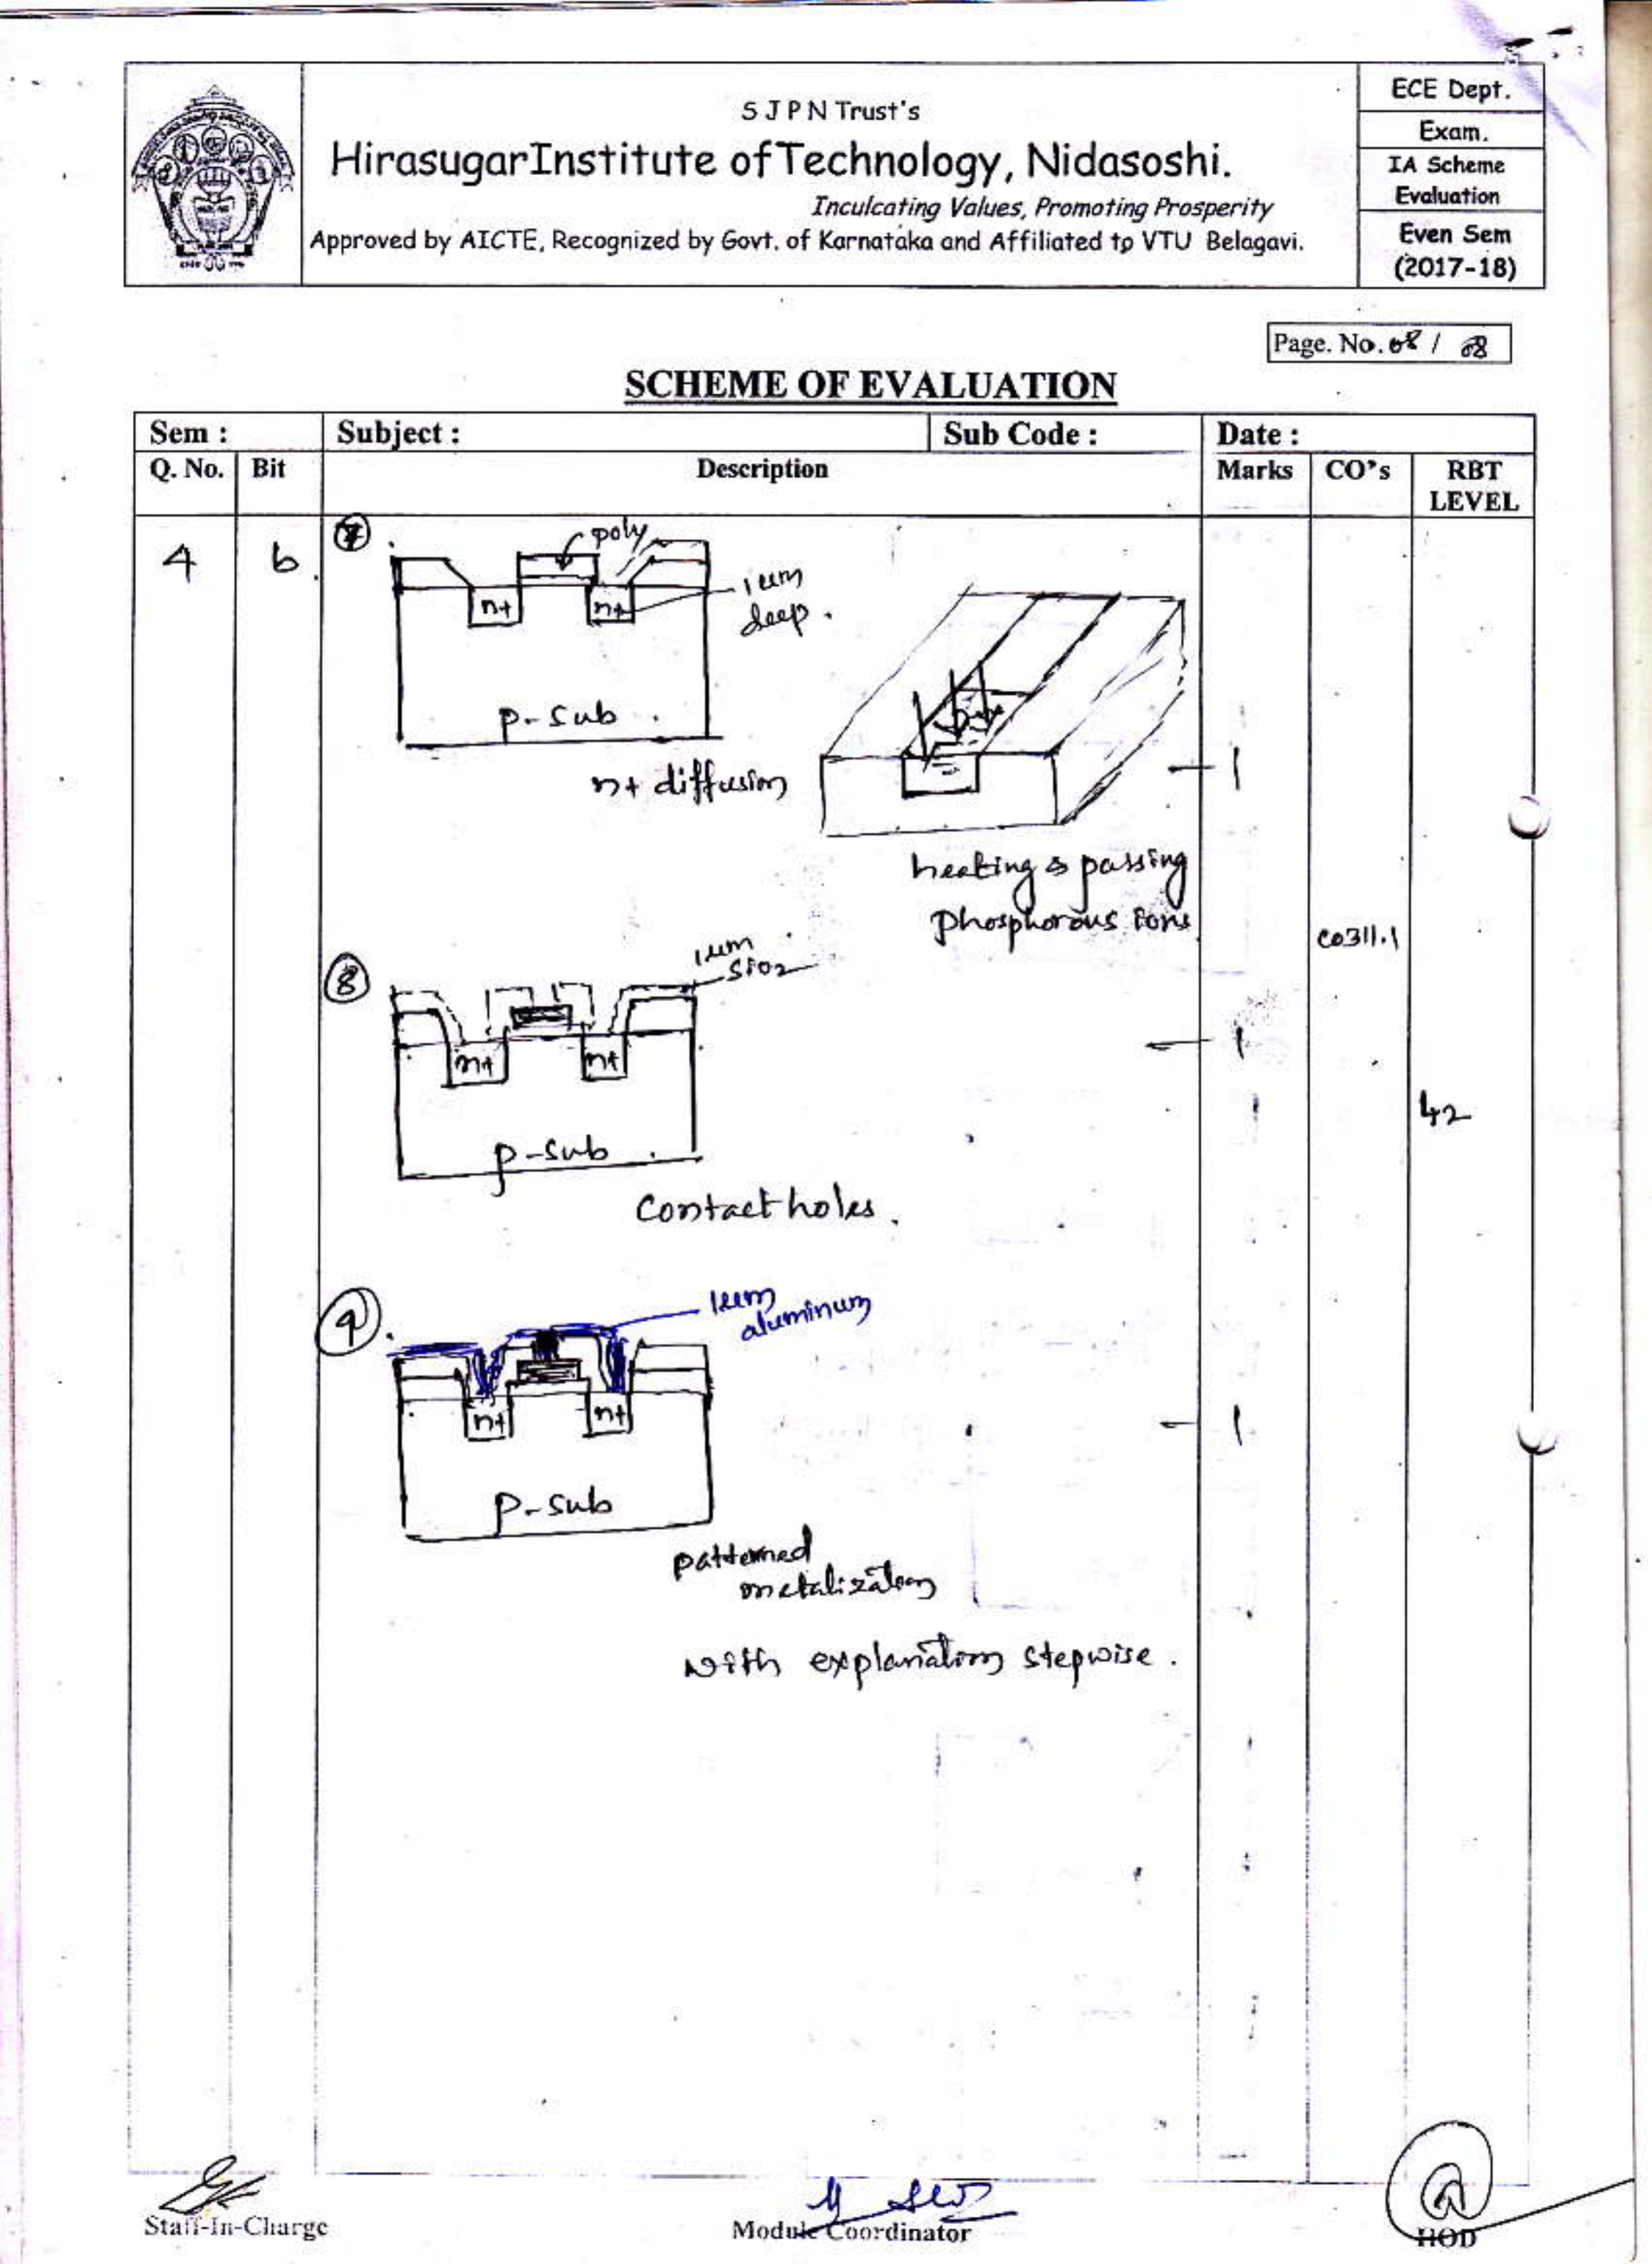 S J P N Trust's
HirasugarInstitute ofTechnology, Nidasoshi.
Inculcating Values, Promoting Prosperity
Approved by AICTE, Recognized by Govt. of Karnataka and Affiliated to VTU Belagavi.
ECE Dept.
Exam.
IA Scheme
Evaluation
Even Sem
(2017-18)
Page. No. 08 / 08
SCHEME OF EVALUATION
Sem : Subject : Sub Code : Date :
Q. No. Bit Description Marks CO's RBT
LEVEL
4 b.
7.
poly
1um
deep.
n+ n+
p-sub
n+ diffusion
1
heating & passing
phosphorous ions
CO311.1
8
1um
SiO2
n+ n+
1
L2
p-sub
Contact holes.
9.
1um
aluminum
n+ n+
1
p-sub
patterned
metalization
with explanation stepwise.
Staff-In-Charge
Module Coordinator
HOD